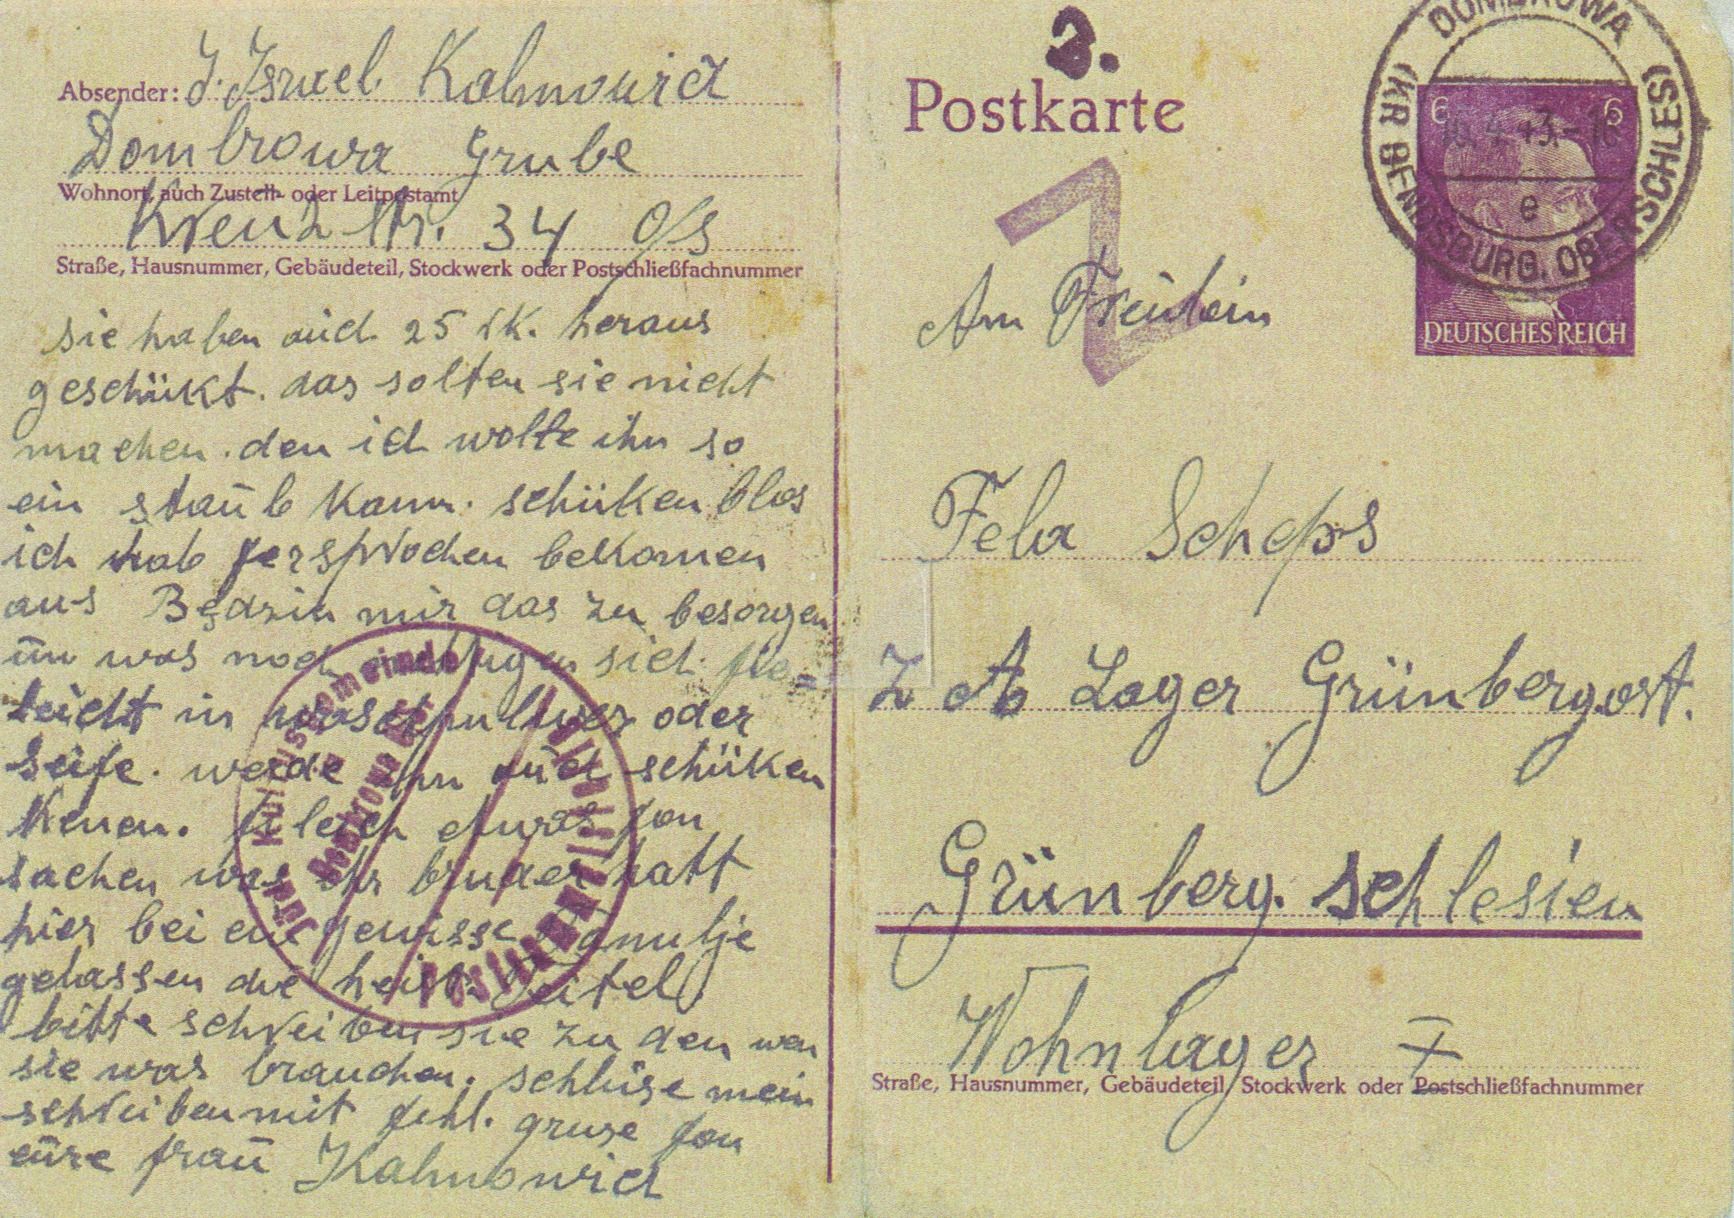 Absender: J. Israel Kalmowicz
Dombrowa Grube
Wohnort, auch Zustell- oder Leitpostamt
Kreuz str. 34 O/S
Straße, Hausnummer, Gebäudeteil, Stockwerk oder Postschließfachnummer
sie haben auch 25 RK. heraus
geschükt. das solten sie nicht
machen. den ich wolte ihn so
ein staub kam. schüken blos
ich hab fersprochen bekomen
aus Będzin mir das zu besorgen
un was noch sich fie=
leicht in waschpulwer oder
seife. werde ihn auch schüken
kenen. fileich etwas fon
sachen was ihr bruder hatt
hier bei eine gewisse Familje
gelassen die heist Zeitel.
bitte schreiben sie zu den wen
sie was brauchen. schlüse mein
schreiben mit fehl. gruse fon
eure frau Kalmowicz
Jüd. Kultusgemeinde
Dombrowa O/S
Postkontrolle
3.
Postkarte
Z
DOMBROWA (SCHLES)
(KR BENDSBURG, OBERSCHLES)
16.4.43.-16
e
6 6
DEUTSCHES REICH
An Freulein
Fela Scheps
Z A Lager Grünberg.ost.
Grünberg. schlesien
Wohnlager I
Straße, Hausnummer, Gebäudeteil, Stockwerk oder Postschließfachnummer